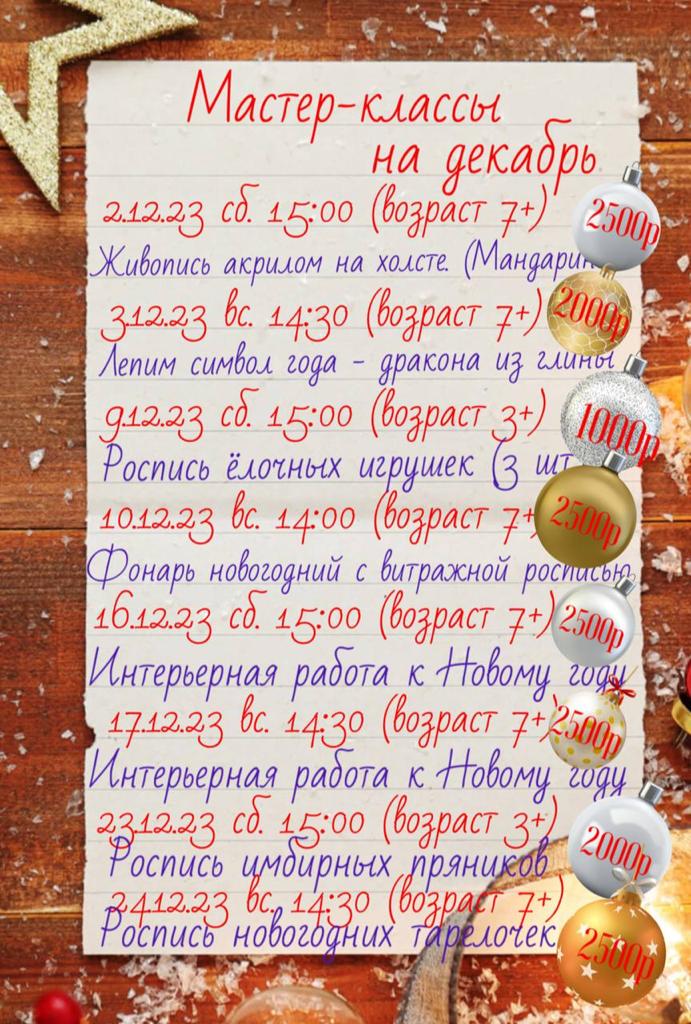 Мастер-классы
на декабрь
2.12.23 сб. 15:00 (возраст 7+)
2500р
Живопись акрилом на холсте. (Мандарин
3.12.23 вс. 14:30 (возраст 7+)
2000р
Лепим символ года - дракона из глины
9.12.23 сб. 15:00 (возраст 3+)
1000р
Роспись ёлочных игрушек (3 шт
10.12.23 вс. 14:00 (возраст 7+
2500р
Фонарь новогодний с витражной росписью
16.12.23 сб. 15:00 (возраст 7+)
2500р
Интерьерная работа к Новому году
17.12.23 вс. 14:30 (возраст 7+)
2500р
Интерьерная работа к Новому году
23.12.23 сб. 15:00 (возраст 3+)
2000р
Роспись имбирных пряников
24.12.23 вс. 14:30 (возраст 7+)
Роспись новогодних тарелочек
2500р